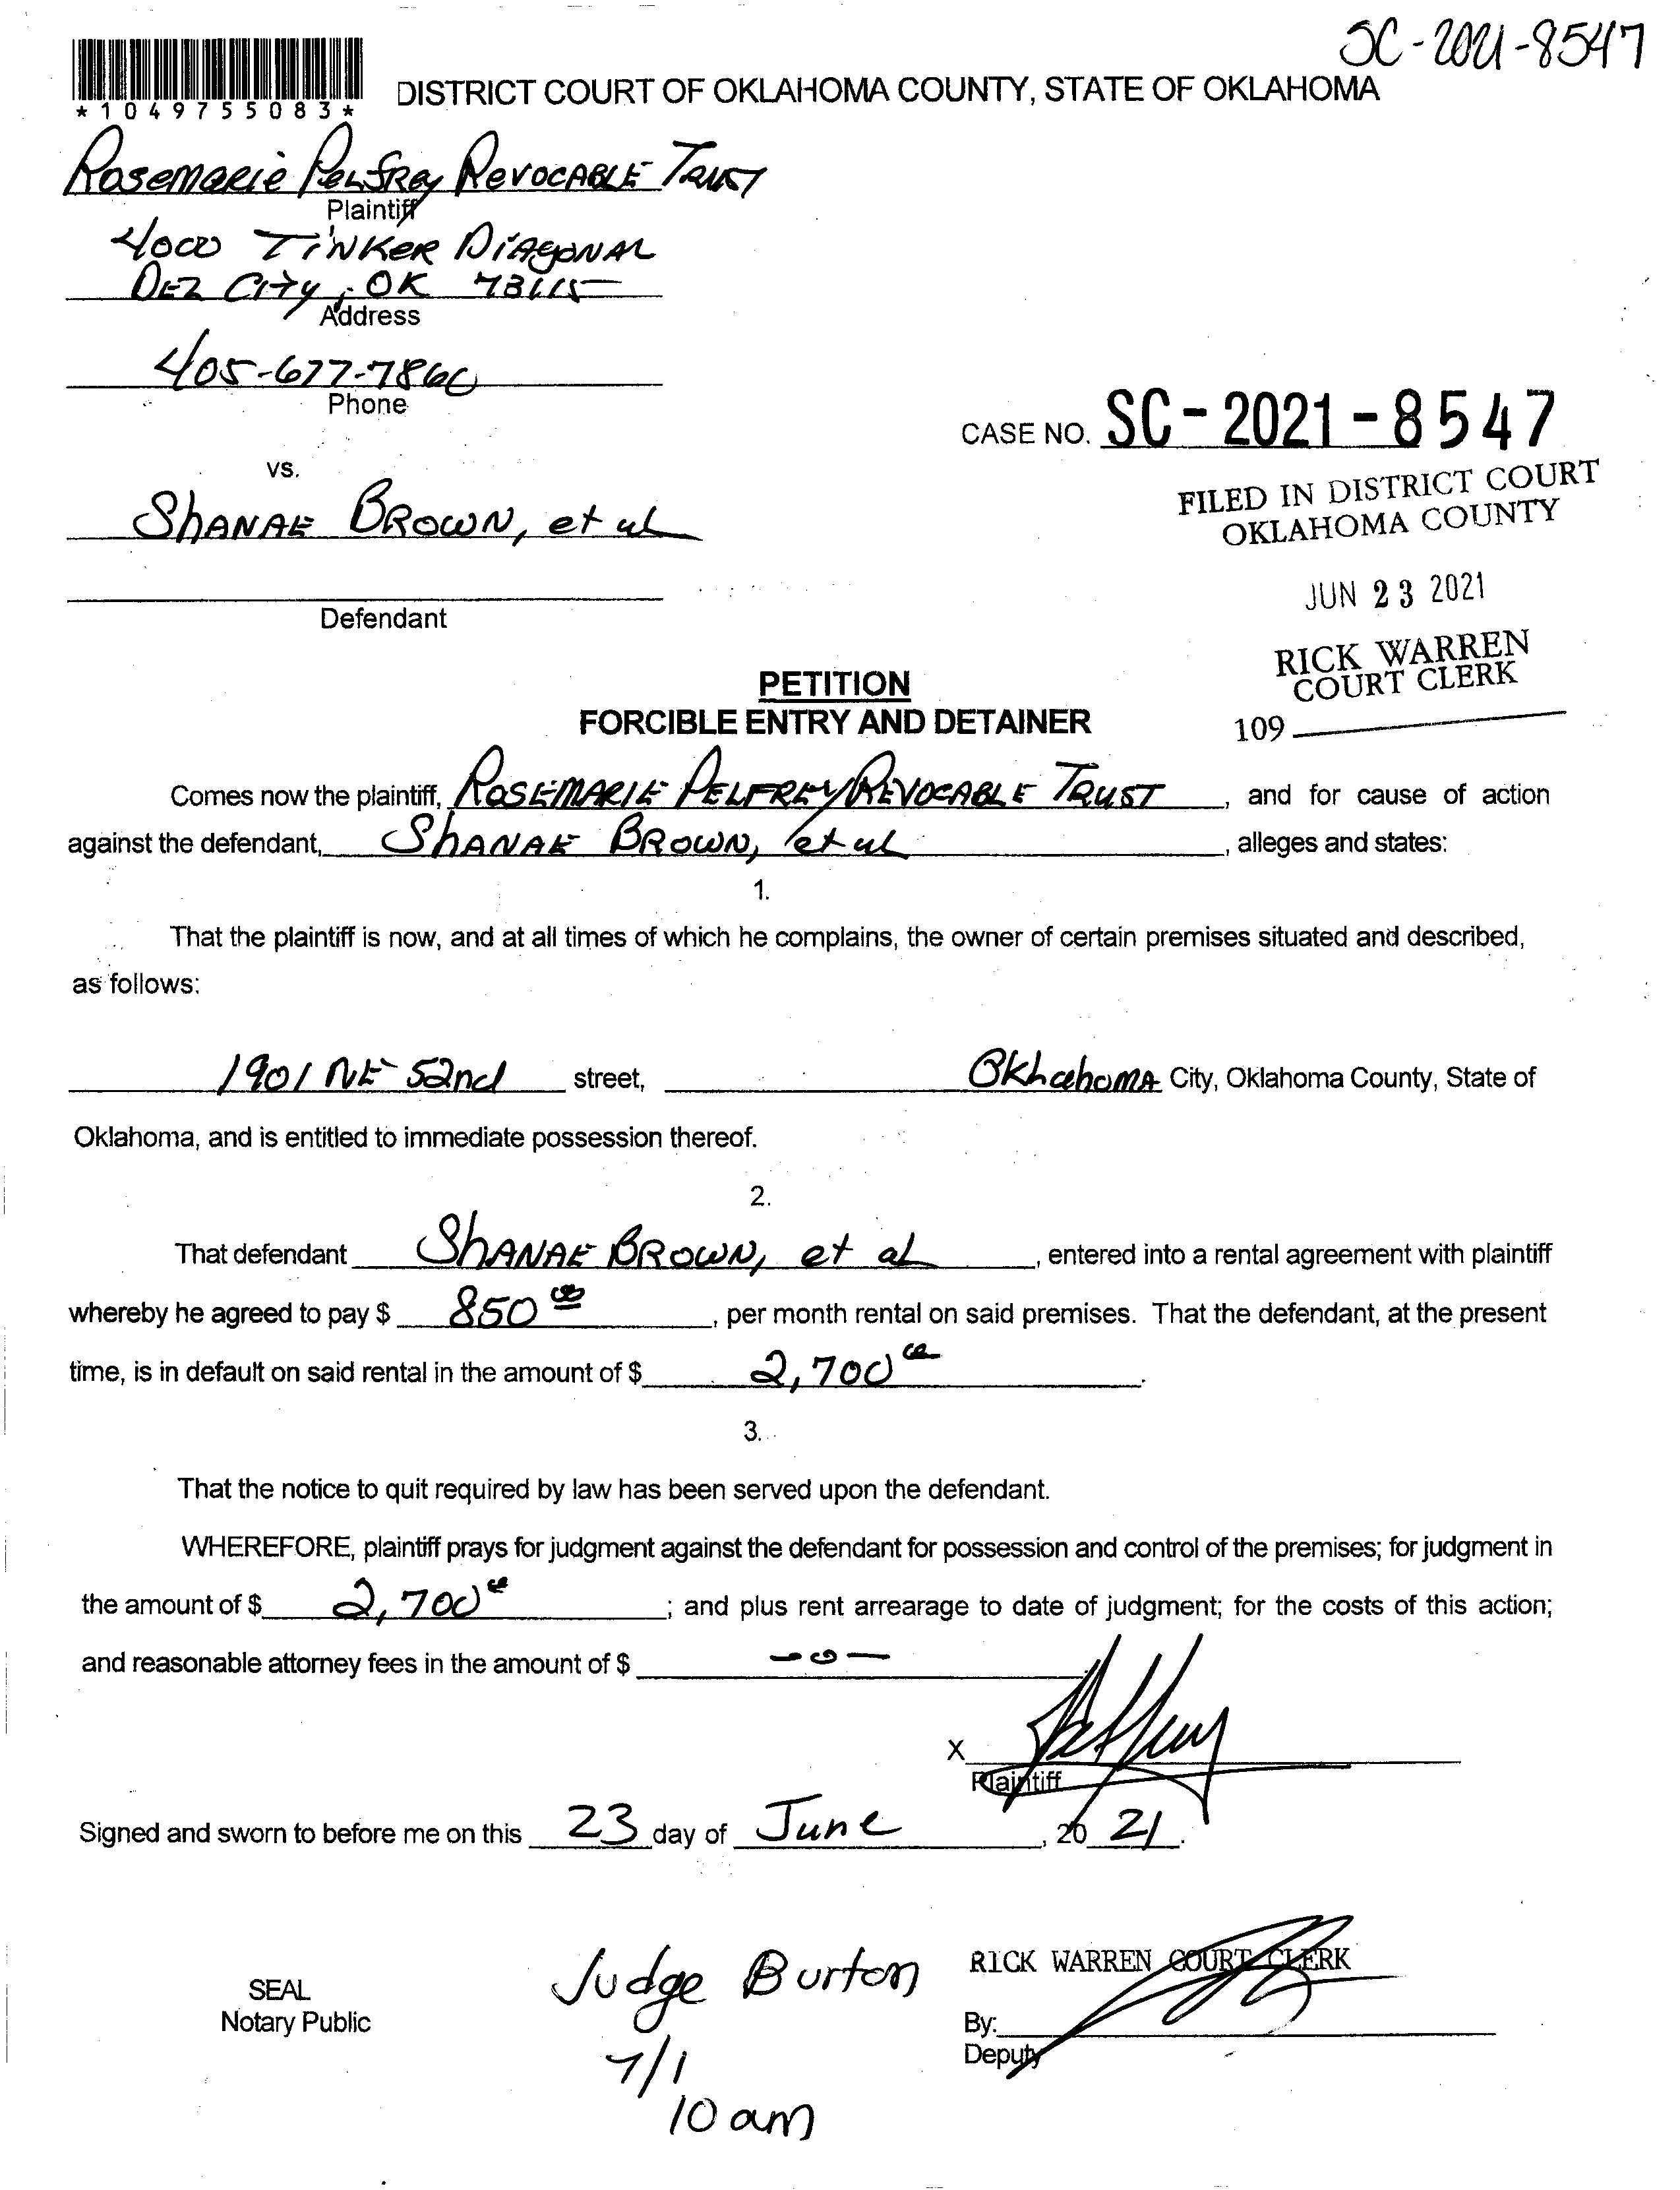 SC-2021-8547
*1049755083*
DISTRICT COURT OF OKLAHOMA COUNTY, STATE OF OKLAHOMA
Rosemarie Pelfrey Revocable Trust
Plaintiff
4000 Tinker Diagonal
Del City, OK 73115
Address
405-677-7860
Phone
CASE NO. SC-2021-8547
vs.
FILED IN DISTRICT COURT
OKLAHOMA COUNTY
Shanae Brown, et al
JUN 23 2021
Defendant
RICK WARREN
COURT CLERK
109
PETITION
FORCIBLE ENTRY AND DETAINER
Comes now the plaintiff, Rosemarie Pelfrey Revocable Trust, and for cause of action
against the defendant, Shanae Brown, et al, alleges and states:
1.
That the plaintiff is now, and at all times of which he complains, the owner of certain premises situated and described,
as follows:
1901 NE 52nd street, Oklahoma City, Oklahoma County, State of
Oklahoma, and is entitled to immediate possession thereof.
2.
That defendant Shanae Brown, et al, entered into a rental agreement with plaintiff
whereby he agreed to pay $ 850 00, per month rental on said premises. That the defendant, at the present
time, is in default on said rental in the amount of $ 2,700 00.
3.
That the notice to quit required by law has been served upon the defendant.
WHEREFORE, plaintiff prays for judgment against the defendant for possession and control of the premises; for judgment in
the amount of $ 2,700 00; and plus rent arrearage to date of judgment; for the costs of this action;
and reasonable attorney fees in the amount of $ -0-
X
Plaintiff
Signed and sworn to before me on this 23 day of June, 20 21.
RICK WARREN COURT CLERK
Judge Burton
SEAL
Notary Public
By:
Deputy
7/1
10 am